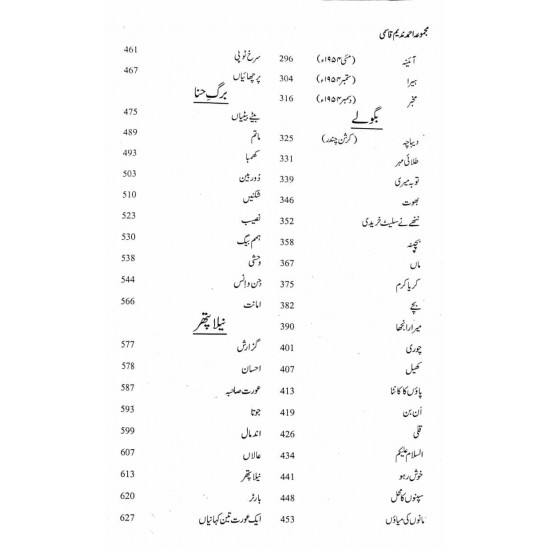 مجموعہ احمد ندیم قاسمی
آئینہ (مئی ۱۹۵۴ء) 296
ہیرا (ستمبر ۱۹۵۴ء) 304
مخبر (دسمبر ۱۹۵۴ء) 316
بگولے
دیباچہ (کرشن چندر) 325
طلائی مہر 331
توبہ میری 339
بھوت 346
ننھے نے سلیٹ خریدی 352
بچپنہ 358
ماں 367
کریا کرم 375
بچے 382
میرا رانجھا 390
چوری 401
کھیل 407
پاؤں کا کانٹا 413
اَن بن 419
قلی 426
السلام علیکم 434
خوش رہو 441
سپنوں کا محل 448
مانوں کی میاؤں 453
سرخ ٹوپی 461
پرچھائیاں 467
برگِ حنا
بیٹے بیٹیاں 475
ماتم 489
کھمبا 493
دُوربین 503
شکنیں 510
نصیب 523
بهم بیگ 530
وحشی 538
جن و انس 544
امانت 566
نیلا پتھر
گزارش 577
احسان 578
عورت صاحبہ 587
جوتا 593
اندمال 599
عالاں 607
نیلا پتھر 613
بارٹر 620
ایک عورت تین کہانیاں 627